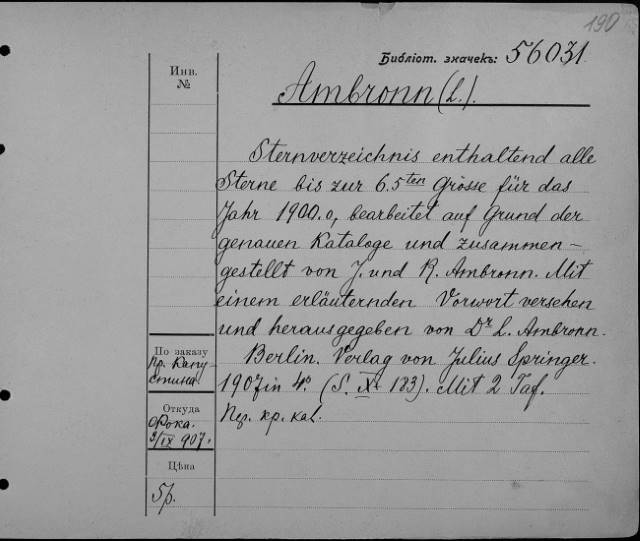 190
Библіот. значекъ: 56031.
Инв.
№
Ambronn (L.).
Sternverzeichnis enthaltend alle
Sterne bis zur 6.5ten Grösse für das
Jahr 1900.0, bearbeitet auf Grund der
genauen Kataloge und zusammen-
gestellt von J. und R. Ambronn. Mit
einem erläuternden Vorwort versehen
und herausgegeben von Dr L. Ambronn.
Berlin. Verlag von Julius Springer.
1907 in 4o. (S. IX + 183). Mit 2 Taf.
кр. каl.
По заказу
Пр. Капу-
стина.
Откуда
Фока.
3/IX 907.
Цѣна
5р.